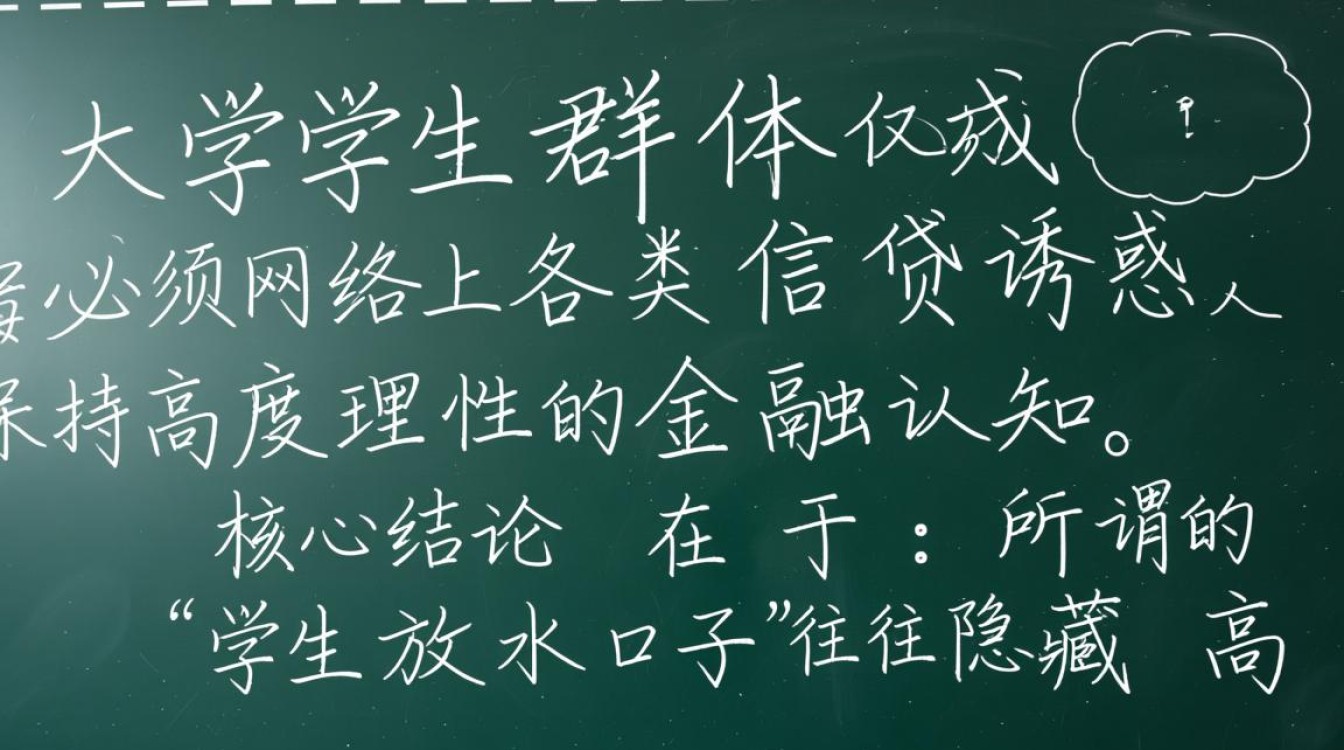 大学学生群体仅
必须网络上各类信贷诱惑人
保持高度理性的金融认知。
核心结论 在于：所谓的
“学生放水口子”往往隐藏 高